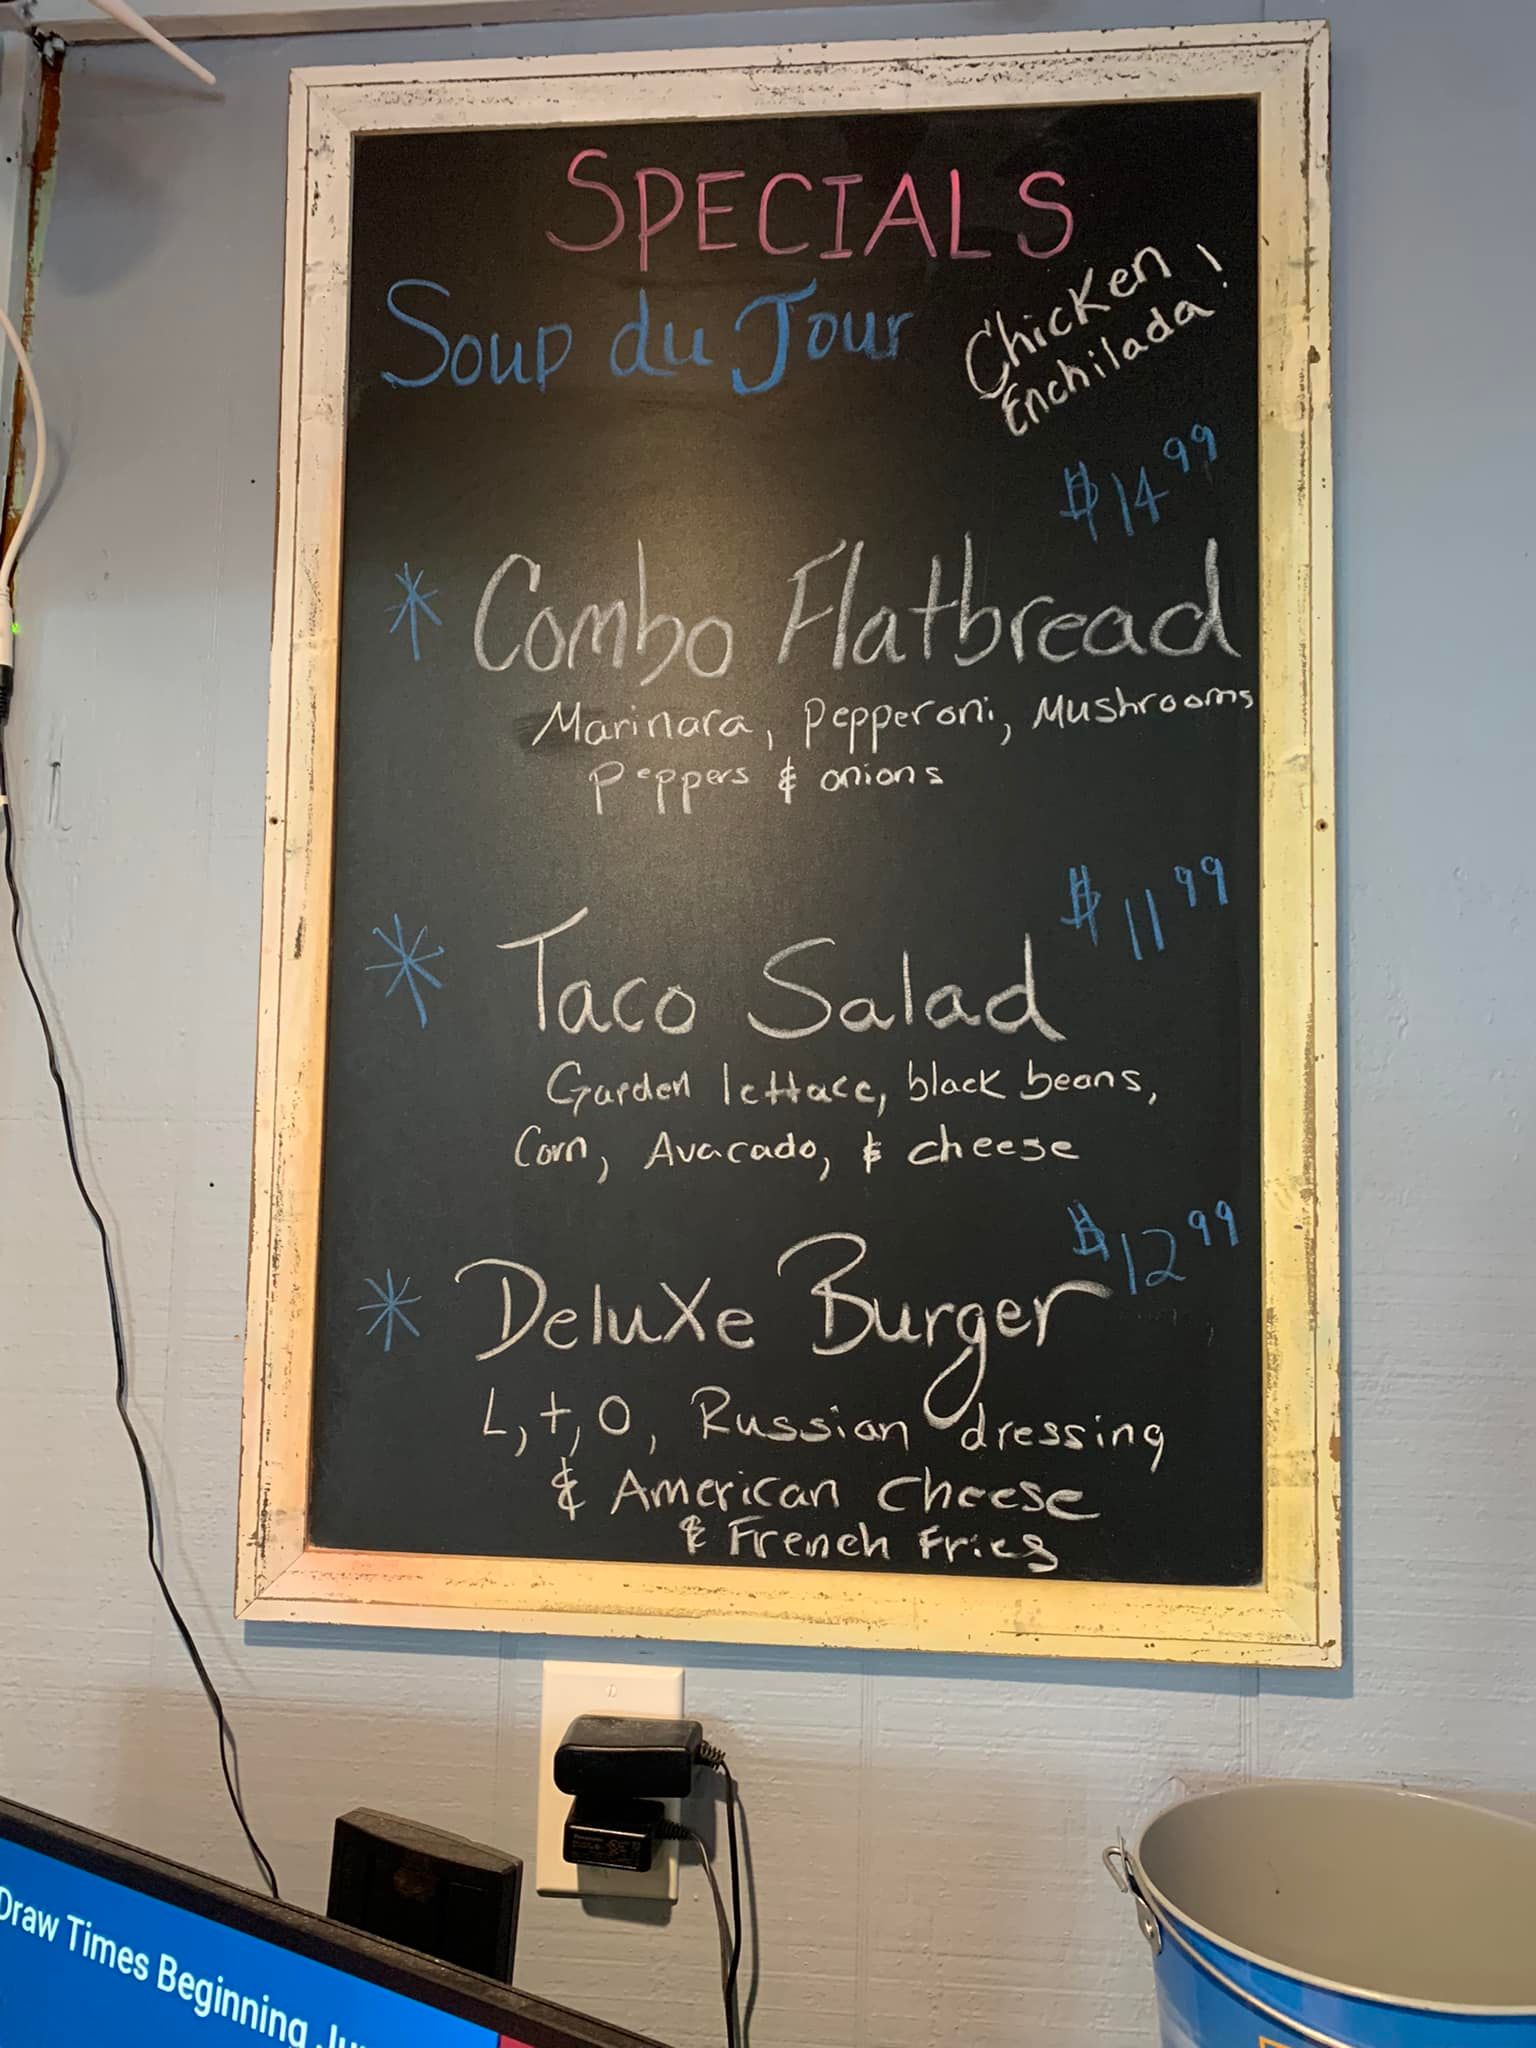 SPECIALS
Soup du Jour
Chicken
Enchilada!
$14 99
* Combo Flatbread
Marinara, Pepperoni, Mushrooms
Peppers & onions
$11 99
* Taco Salad
Garden lettace, black beans,
Corn, Avacado, & cheese
$12 99
* Deluxe Burger
L, t, O, Russian dressing
& American cheese
& French Fries
Draw Times Beginning